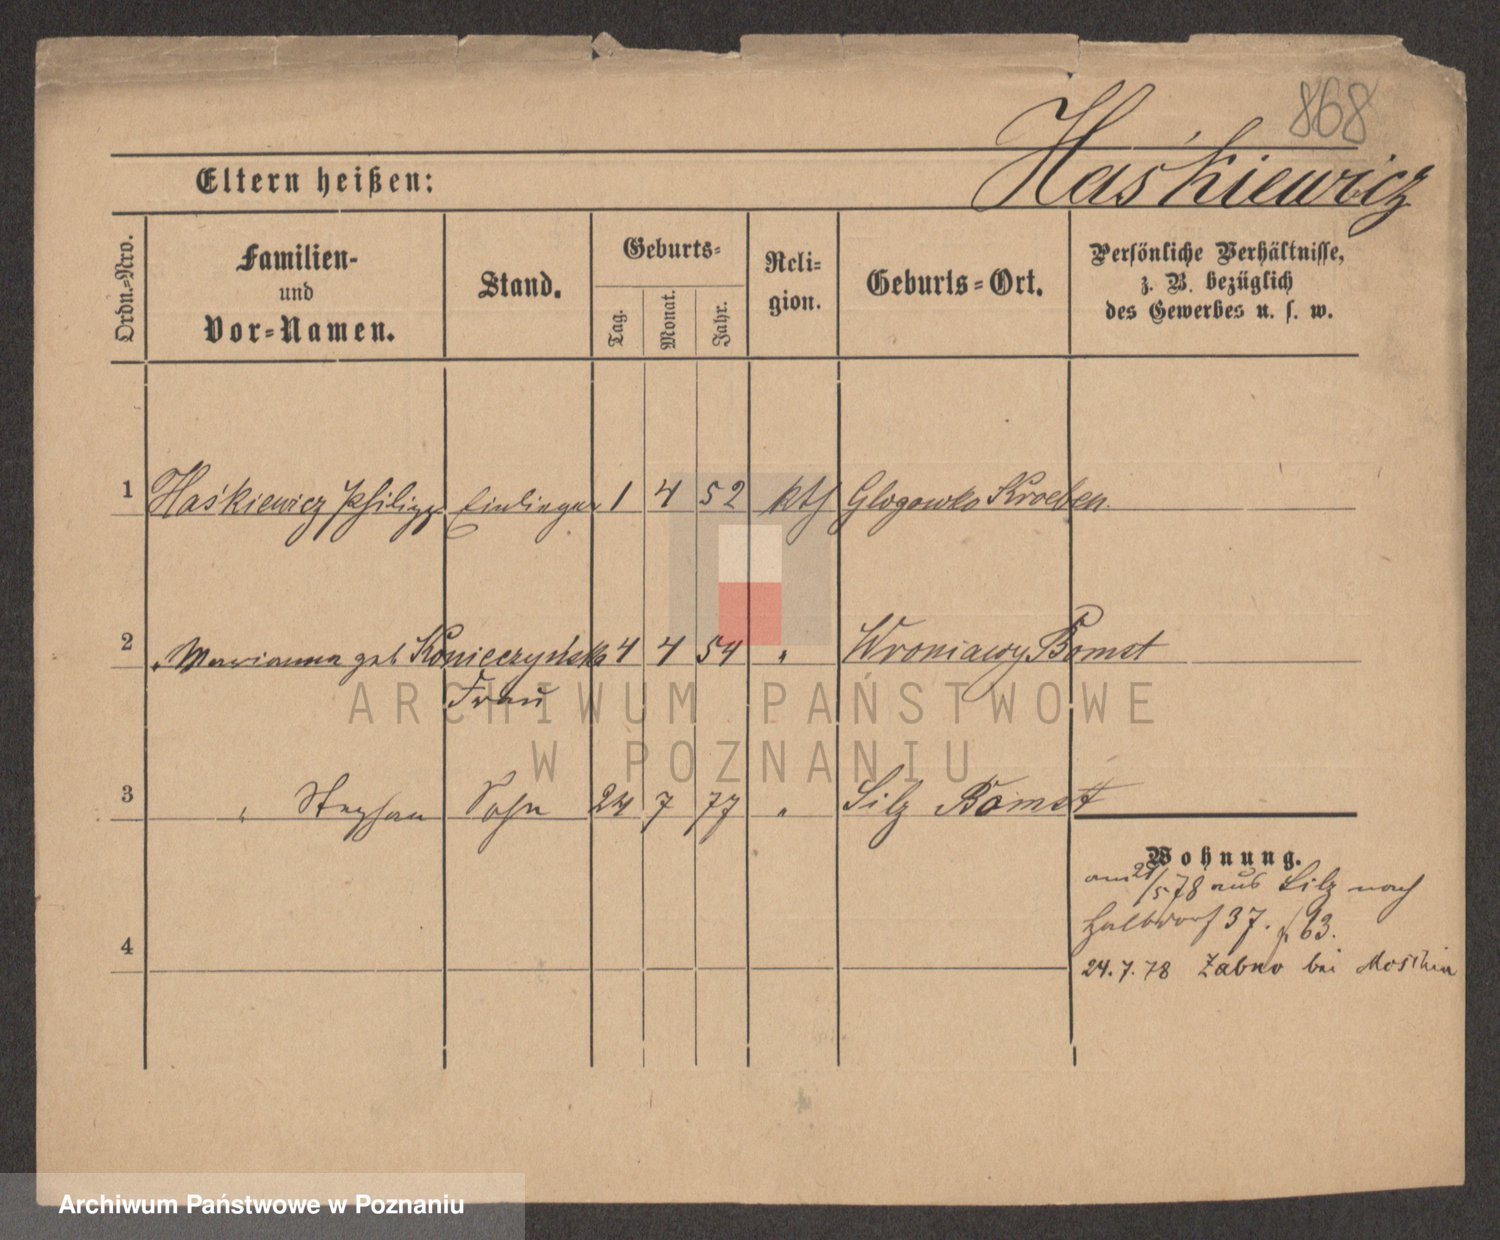 868
Haśkiewicz
Eltern heißen:
Ordn.-Nro.
Familien-
und
Vor-Namen.
Stand.
Geburts-
Tag.
Monat.
Jahr.
Reli-
gion.
Geburts-Ort.
Persönliche Verhältnisse,
z. B. bezüglich
des Gewerbes u. s. w.
1 Haśkiewicz Philipp Einlieger 1 4 52 kth Glogowko Kroeben.
2 " Marianna geb Konieczyńska 4 4 54 " Wroniawy Bomst
Frau
3 " Stephan Sohn 24 7 77 " Silz Bomst
Wohnung.
am 28/5 78 aus Silz nach
Halbdorf 37. 63.
4
24.7.78 Zabno bei Moschin
ARCHIWUM PAŃSTWOWE
W POZNANIU
Archiwum Państwowe w Poznaniu